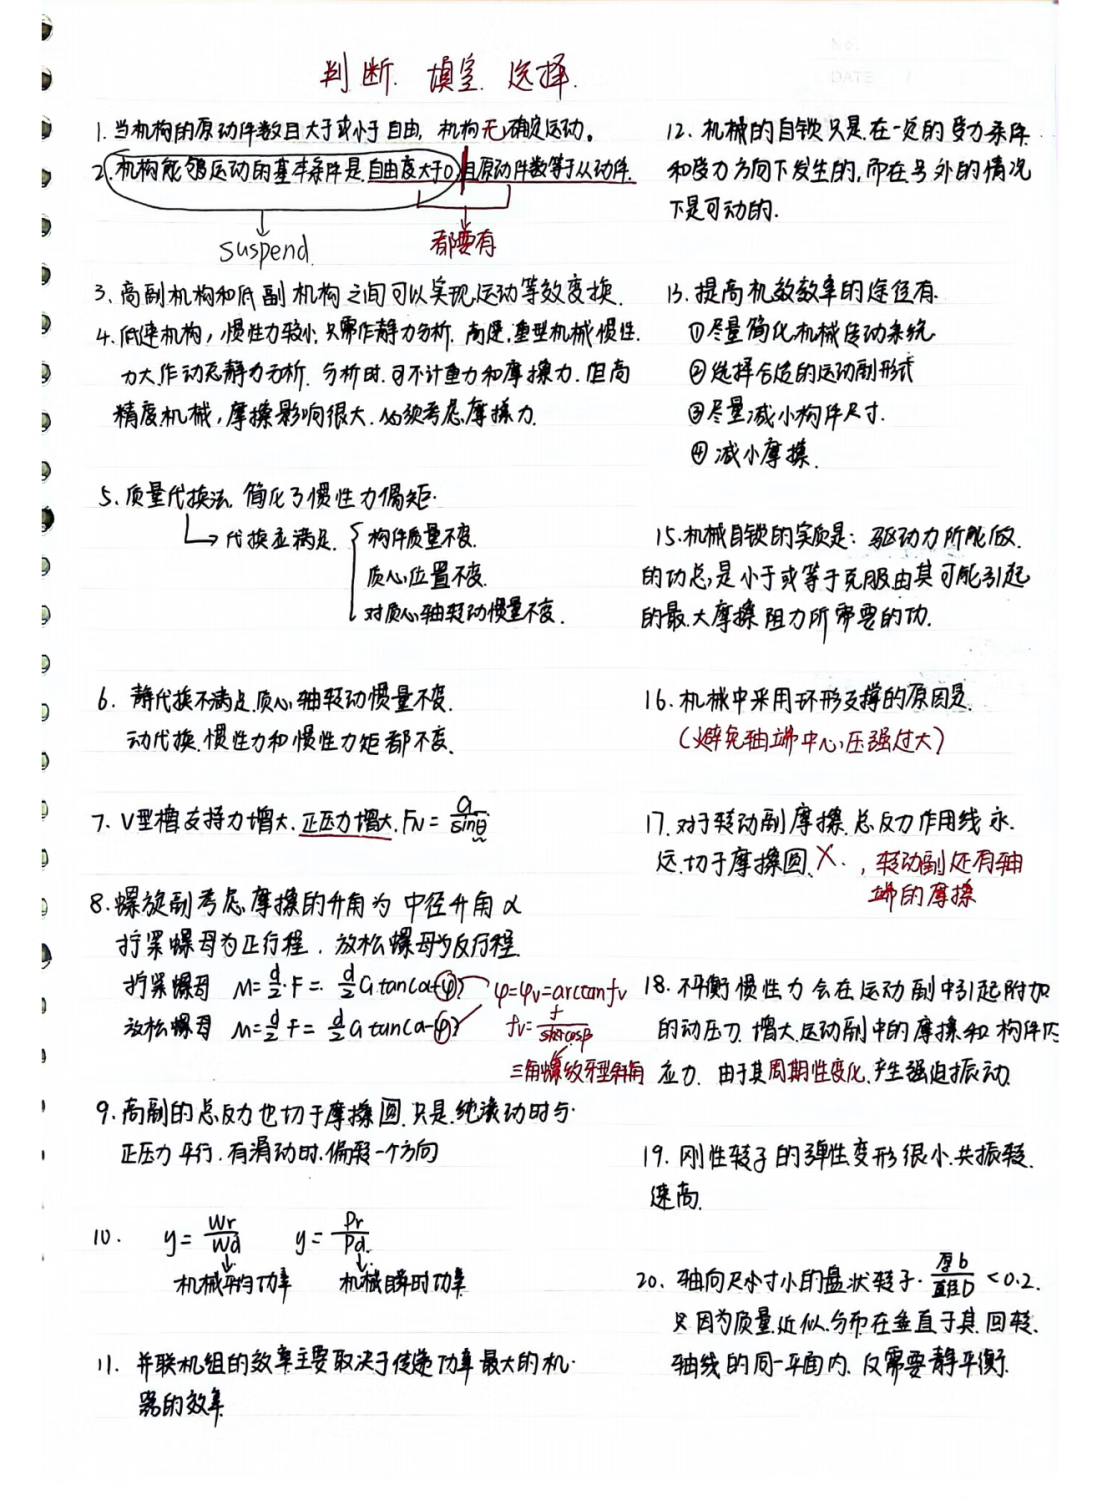 判断. 填空. 选择.
1. 当机构的原动件数目大于或小于自由, 机构无确定运动。
2. 机构能够运动的基本条件是自由度大于0, 且原动件数等于从动件.
suspend.
都要有
3. 高副机构和低副机构之间可以实现运动等效变换.
4. 低速机构, 惯性力较小, 只需作静力分析. 高速.重型机械惯性.
力大.作动态静力分析. 分析时.可不计重力和摩擦力. 但高
精度机械, 摩擦影响很大. 必须考虑摩擦力.
5. 质量代换法. 简化了惯性力偏矩.
代换应满足.
构件质量不变.
质心位置不变.
对质心轴转动惯量不变.
6. 静代换不满足质心轴转动惯量不变.
动代换.惯性力和惯性力矩都不变.
7. V型槽支持力增大. 正压力增大. FN = G/sinθ
8. 螺旋副考虑摩擦的升角为中径升角α
拧紧螺母为正行程. 放松螺母为反行程.
拧紧螺母 M=d/2·F=d/2Gtan(α+φ)
φ=φv=arctanfv
放松螺母 M=d/2F=d/2Gtan(α-φ)
三角螺纹牙型斜角
9. 高副的总反力也切于摩擦圆.只是.纯滚动时与.
正压力平行.有滑动时.偏转一个方向
10. y=Wr/Wd y=Pr/Pd.
机械平均功率 机械瞬时功率
11. 并联机组的效率主要取决于传递功率最大的机.
器的效率
12. 机械的自锁只是在一定的受力条件
和受力方向下发生的,而在另外的情况
下是可动的.
13. 提高机效数率的途径有.
①尽量简化机械传动系统
②选择合适的运动副形式
③尽量减小构件尺寸.
④减小摩擦.
15.机械自锁的实质是: 驱动力所能做.
的功总是小于或等于克服由其可能引起
的最大摩擦阻力所需要的功.
16. 机械中采用环形支撑的原因是.
(避免轴端中心压强过大)
17. 对于转动副摩擦.总反力作用线永.
远.切于摩擦圆. X. , 转动副还有轴
端的摩擦
18. 不平衡惯性力会在运动副中引起附加
的动压力.增大运动副中的摩擦和构件内
应力. 由于其周期性变化.产生强迫振动.
19. 刚性转子的弹性变形很小.共振转.
速高.
20. 轴向尺寸小的盘状转子. 厚b/直径D <0.2.
只因为质量近似分布在垂直于其回转.
轴线的同一平面内. 仅需要静平衡.